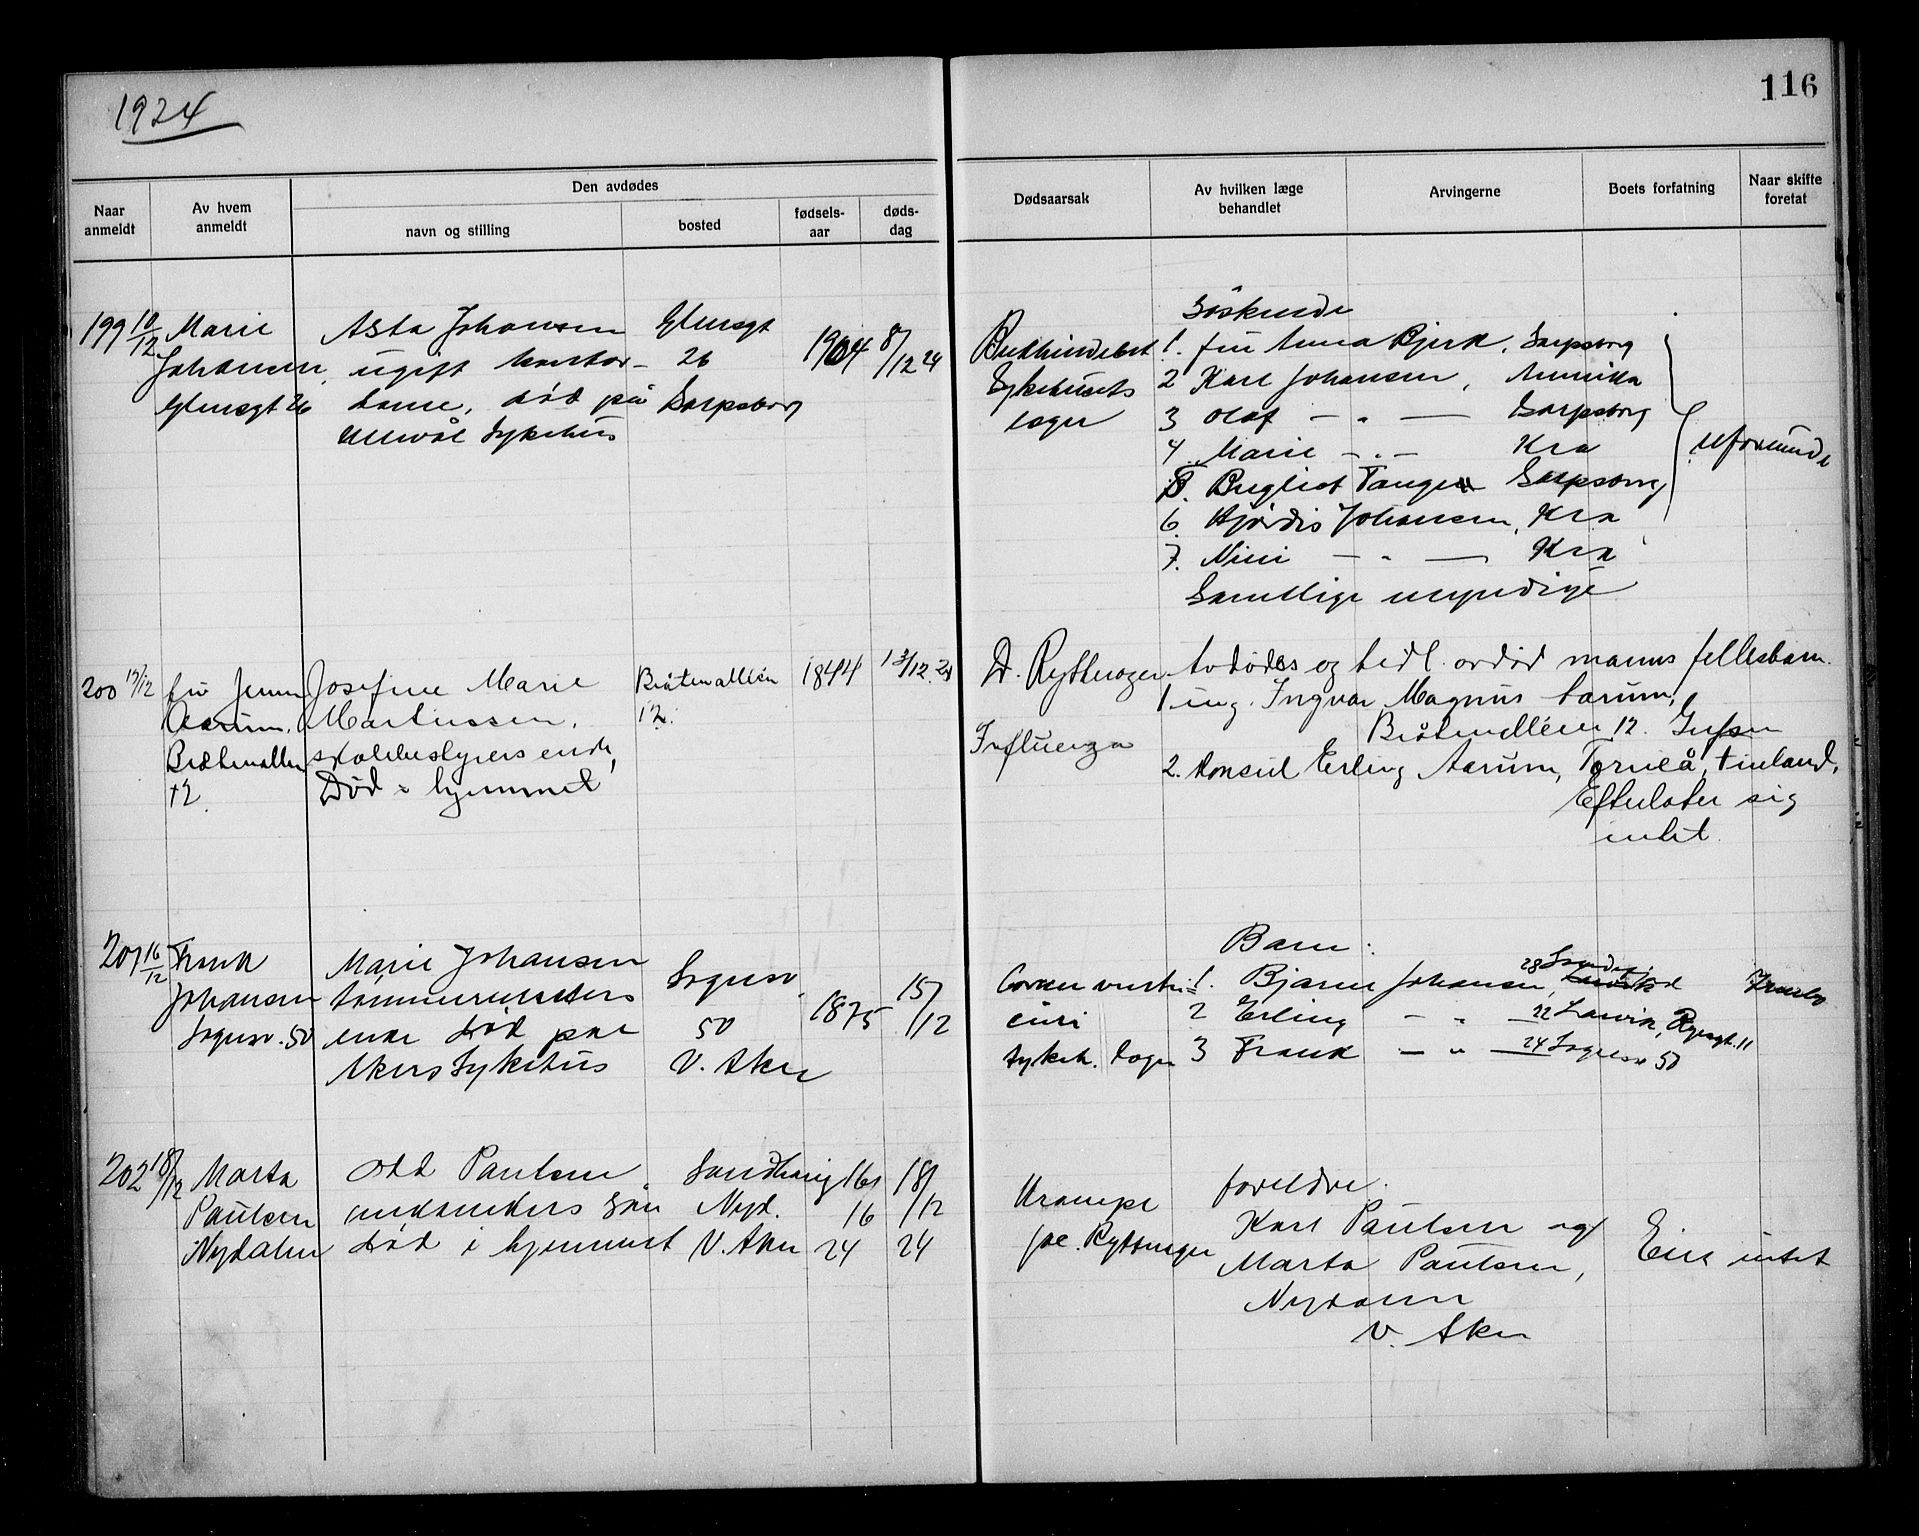 1924
116
Den avdødes
Naar anmeldt
Av hvem anmeldt
navn og stilling
bosted
fødsels-aar
døds-dag
Dødsaarsak
Av hvilken læge behandlet
Arvingerne
Boets forfatning
Naar skifte foretat
199 10/12 Marie
Johansen,
Glengst 26
Asta Johansen
ugift kontor-
dame, død på
Ullevål Sykehus
Glengst
26
Sarpsborg
1904 8/12 24
Sykehusets
læger
Söskende
1. fru Anna Bjerk, Sarpsborg
2 Karl Johansen, Amerika
3 Olaf — " — Sarpsborg
4. Marie — " — Kra
5. Tange Sarpsborg
6. Hjördis Johansen, Kra
7. Nini — " — Kra
Samtlige umyndige
200 15/12 fru Jenny
Aarum,
12.
Josefine Marie
Martinssen,
skolebestyrers enke,
Död i hjemmet
Bråtenalléen
12.
1844 13/12.24
D. Rytterager
Influenza
Avdødes og tidl. avdød manns fellesbarn.
1 ing. Ingvar Magnus Aarum,
Bråtenalléen 12.
2. Konsul Erling Aarum, Torneå, Finland,
Efterlater sig
intet.
201 16/12 Frank
Johansen
Sognsv. 50
Marie Johansen
tömmermesters
enke død paa
Akers Sykehus
Sognsv.
50
V. Aker
1875 15/12
Cancer ventri-
culi
Sykeh. læger
Barn:
1. Bjarne Johansen, 28
2 Erling — " — 22 Larvik,
3 Frank — " — 24 Sognsv 50
202 18/12 Marta
Paulsen
Nydalen
Odd Paulsen
sön
död i hjemmet
Nyd.
V. Aker
16/
16
24
18/
/12
24
Krampe
Rytterager
foreldre.
Karl Paulsen og
Marta Paulsen,
Nydalen
V. Aker
Eier intet